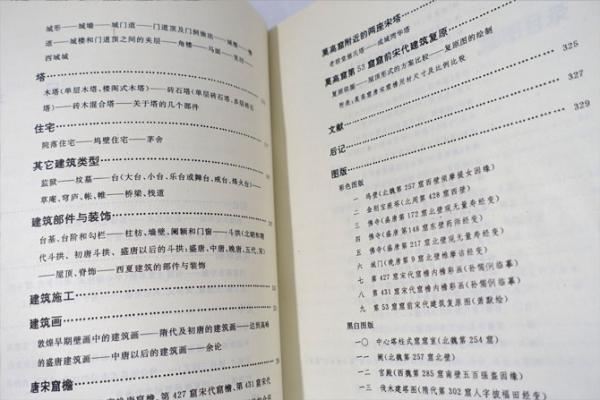 城形——城墙——城门道——门道顶及门洞做法——城楼
道——城楼和门道顶之间的夹层——角楼——马面
西域城
塔
木塔(单层木塔、楼阁式木塔)——砖石塔(单层砖石塔、多层砖石
塔)——砖木混合塔——关于塔的几个部件
住宅
院落住宅——坞壁住宅——茅舍
其它建筑类型
监狱——坟墓——台(大台、小台、乐台或舞台、戒台、烽火台)——
草庵、穹庐、帐、帷——桥梁、栈道
建筑部件与装饰
台基、台阶和勾栏——柱枋、墙壁、阑额和门窗——斗拱(北朝和隋
代斗拱、初唐斗拱、盛唐以后的斗拱:盛唐、中唐、晚唐、五代、宋)
——屋顶、脊饰——西夏建筑的部件与装饰
建筑施工
建筑画
敦煌早期壁画中的建筑画——隋代及初唐的建筑画——达到高峰
的盛唐建筑画——中唐以后的建筑画——余论
唐宋窟檐
莫高窟附近的两座宋塔
老君堂慈氏塔——成城湾华塔
莫高窟第53窟窟前宋代建筑复原
复原依据——屋顶形式的方案比较——复原图的绘制
附表:莫高窟唐宋窟檐用材尺寸及比例比较
文献 325
后记 329
图版
彩色图版
一 坞壁(北魏第257窟西壁须摩提女因缘)
二 金刚宝座塔(北周第428窟西壁)
三 佛寺(盛唐第172窟北壁观无量寿经变)
四 佛寺(盛唐第148窟东壁药师经变)
五 佛寺(盛唐第217窟北壁观无量寿经变)
六 城门(晚唐第9窟北壁维摩诘经变)
七 第427窟宋代窟檐内檐彩画(孙儒僩临摹)
八 第431窟宋代窟檐内檐彩画(孙儒僩临摹)
九 第53窟窟前宋代建筑复原图(萧默绘)
黑白图版
一〇 中心塔柱式窟窟室(北魏第254窟)
一一 阙(北魏第257窟北壁)
一二 宫殿(西魏第285窟南壁五百强盗因缘)
一三 伐木建塔图(隋代第302窟人字披福田经变)